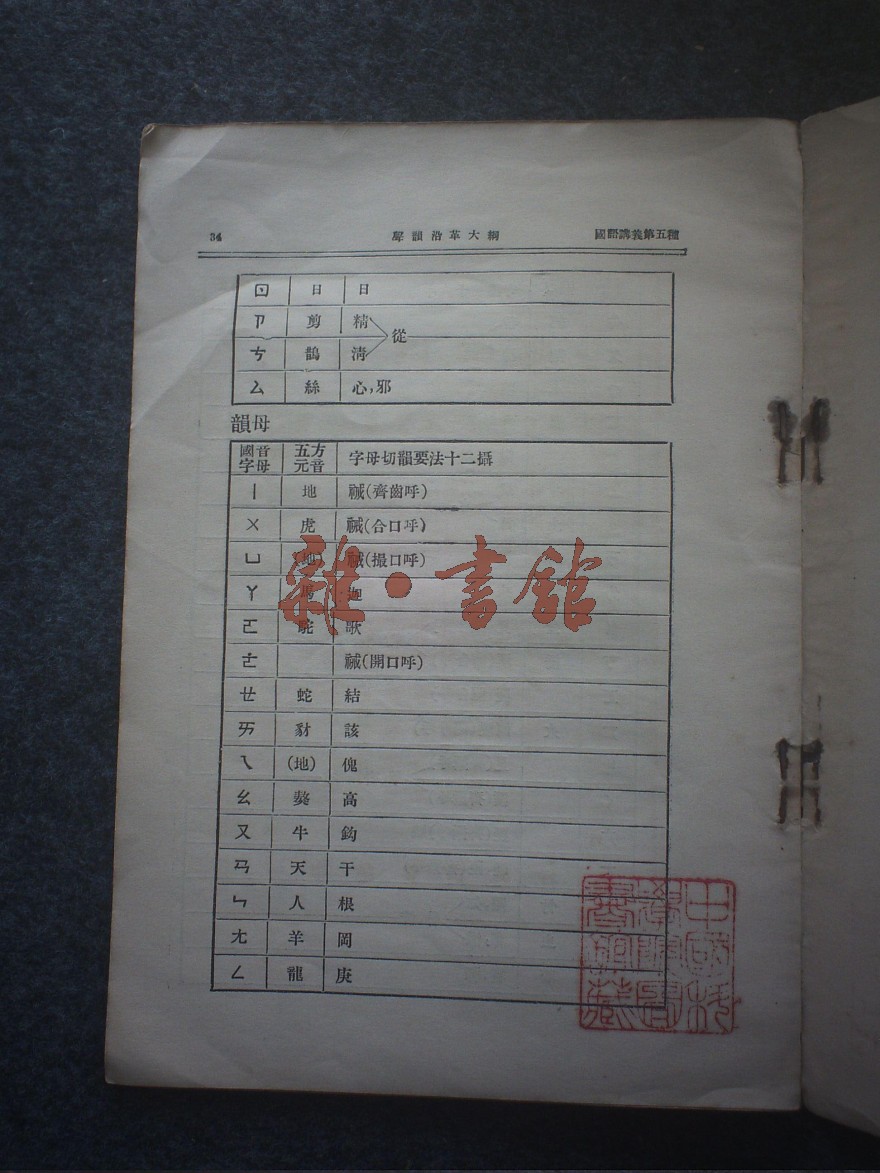 34 聲韻沿革大綱 國語講義第五種
ㄖ 日 日
ㄗ 剪 精 從
ㄘ 鵲 清
ㄙ 絲 心,邪
韻母
國音字母 五方元音 字母切韻要法十二攝
ㄧ 地 祴(齊齒呼)
ㄨ 虎 祴(合口呼)
ㄩ (地) 祴(撮口呼)
ㄚ 馬 迦
ㄛ 駝 歌
ㄜ 祴(開口呼)
ㄝ 蛇 結
ㄞ 豺 該
ㄟ (地) 傀
ㄠ 獒 高
ㄡ 牛 鈎
ㄢ 天 干
ㄣ 人 根
ㄤ 羊 岡
ㄥ 龍 庚
雜·書館